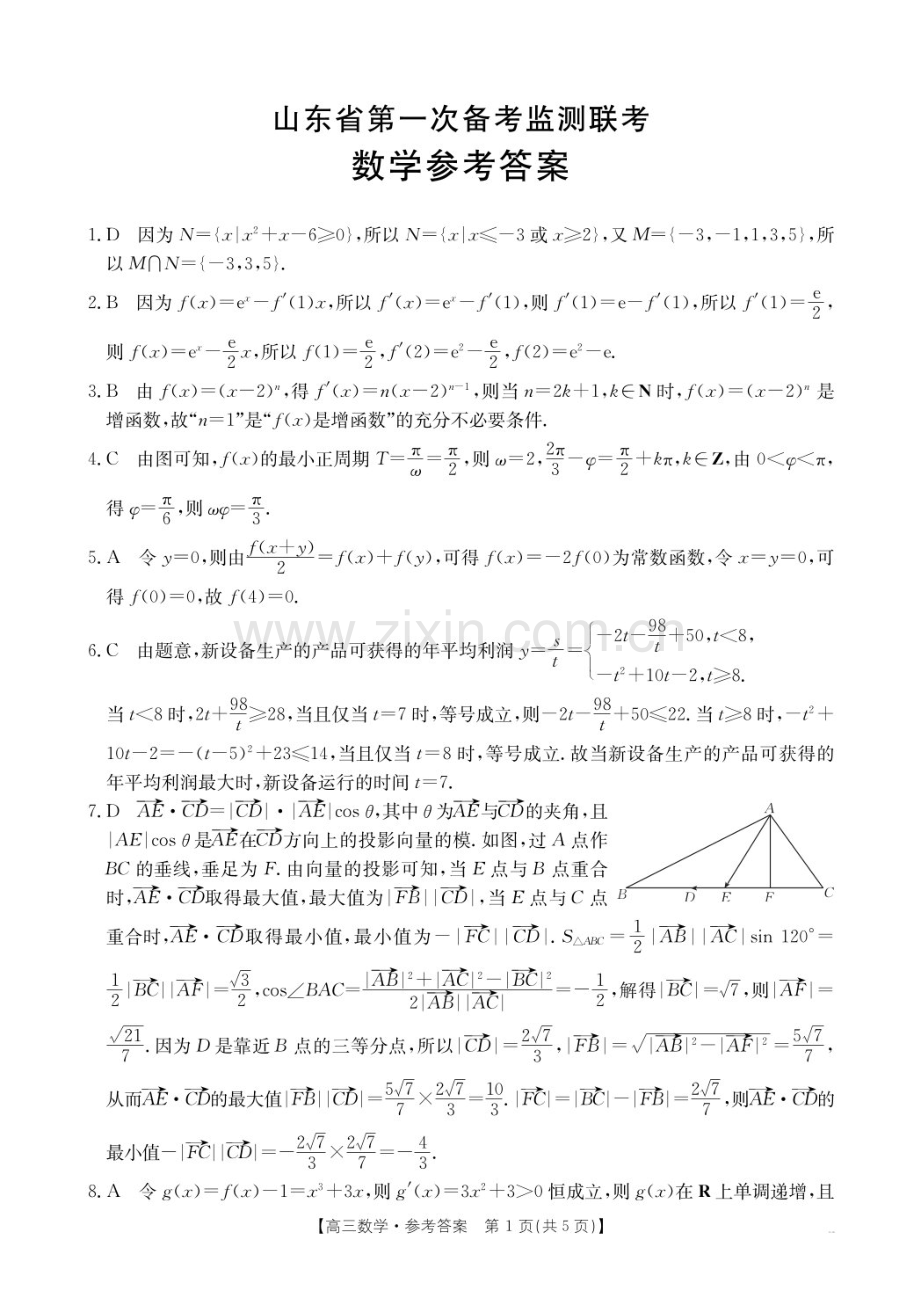 山东省第一次备考监测联考
数学参考答案
1. D　因为 N={x|x²+x−6≥0},所以 N={x|x≤−3 或 x≥2},又 M={−3,−1,1,3,5},所
以 M∩N={−3,3,5}.
2. B　因为 f(x)=eˣ−f′(1)x,所以 f′(x)=eˣ−f′(1),则 f′(1)=e−f′(1),所以 f′(1)=e/2,
则 f(x)=eˣ−e/2 x,所以 f(1)=e/2,f′(2)=e²−e/2,f(2)=e²−e.
3. B　由 f(x)=(x−2)ⁿ,得 f′(x)=n(x−2)ⁿ⁻¹,则当 n=2k+1,k∈N 时,f(x)=(x−2)ⁿ 是
增函数,故“n=1”是“f(x)是增函数”的充分不必要条件.
4. C　由图可知,f(x)的最小正周期 T=π/ω=π/2,则 ω=2,2π/3−φ=π/2+kπ,k∈Z,由 0<φ<π,
得 φ=π/6,则 ωφ=π/3.
5. A　令 y=0,则由f(x+y)/2=f(x)+f(y),可得 f(x)=−2f(0)为常数函数,令 x=y=0,可
得 f(0)=0,故 f(4)=0.
www.zixin.com.cn
6. C　由题意,新设备生产的产品可获得的年平均利润 y=s/t={−2t−98/t+50,t<8,
−t²+10t−2,t≥8.
当 t<8 时,2t+98/t≥28,当且仅当 t=7 时,等号成立,则−2t−98/t+50≤22. 当 t≥8 时,−t²+
10t−2=−(t−5)²+23≤14,当且仅当 t=8 时,等号成立. 故当新设备生产的产品可获得的
年平均利润最大时,新设备运行的时间 t=7.
7. D　AE→·CD→=|CD→|·|AE→|cos θ,其中 θ 为AE→与CD→的夹角,且
|AE|cos θ 是AE→在CD→方向上的投影向量的模. 如图,过 A 点作
BC 的垂线,垂足为 F. 由向量的投影可知,当 E 点与 B 点重合
时,AE→·CD→取得最大值,最大值为|FB→||CD→|,当 E 点与 C 点
A
B D E F C
重合时,AE→·CD→取得最小值,最小值为−|FC→||CD→|. S△ABC=1/2|AB→||AC→|sin 120°=
1/2|BC→||AF→|=√3/2,cos∠BAC=(|AB→|²+|AC→|²−|BC→|²)/(2|AB→||AC→|)=−1/2,解得|BC→|=√7,则|AF→|=
√21/7. 因为 D 是靠近 B 点的三等分点,所以|CD→|=2√7/3,|FB→|=√(|AB→|²−|AF→|²)=5√7/7,
从而AE→·CD→的最大值|FB→||CD→|=5√7/7×2√7/3=10/3. |FC→|=|BC→|−|FB→|=2√7/7,则AE→·CD→的
最小值−|FC→||CD→|=−2√7/3×2√7/7=−4/3.
8. A　令 g(x)=f(x)−1=x³+3x,则 g′(x)=3x²+3>0 恒成立,则 g(x)在 R 上单调递增,且
【高三数学·参考答案　第 1 页(共 5 页)】